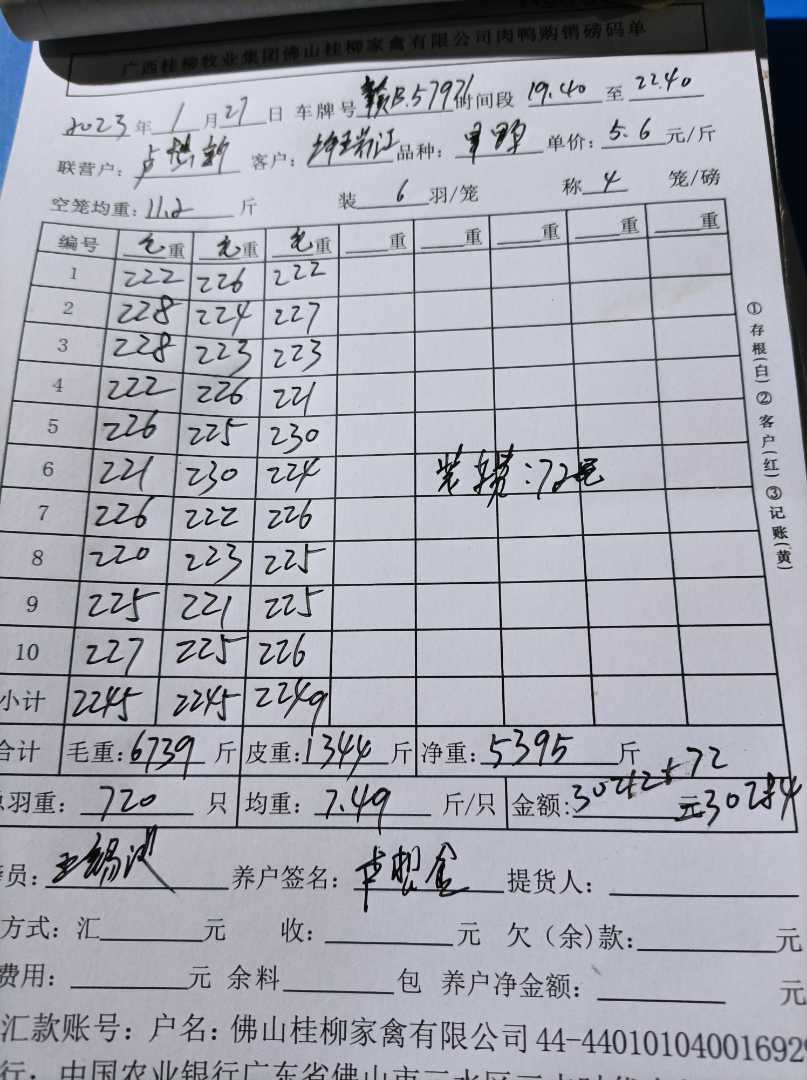 广西桂柳牧业集团佛山桂柳家禽有限公司肉鸭购销磅码单
2023年1月27日 车牌号 赣B.57971 时间段 19.40 至 22.40
联营户: 客户: 品种: 单价: 5.6 元/斤
空笼均重: 11.2 斤 装 6 羽/笼 称 4 笼/磅
编号 毛重 毛重 毛重 重 重 重 重 重
1 222 226 222
2 228 224 227
3 228 223 223
4 222 226 221
5 226 225 230
6 221 230 224
装 : 72
7 226 222 226
8 220 223 225
9 225 221 225
10 227 225 226
小计 2245 2245 2249
合计 毛重: 6739 斤 皮重: 1344 斤 净重: 5395 斤
羽重: 720 只 均重: 7.49 斤/只 金额: 30212+72 元 30284
员: 王锡 养户签名: 提货人:
方式: 汇 元 收: 元 欠(余)款: 元
费用: 元 余料 包 养户净金额: 元
汇款账号: 户名: 佛山桂柳家禽有限公司 44-44010104001692
行: 中国农业银行广东省佛山市三水区
①存根(白)②客户(红)③记账(黄)